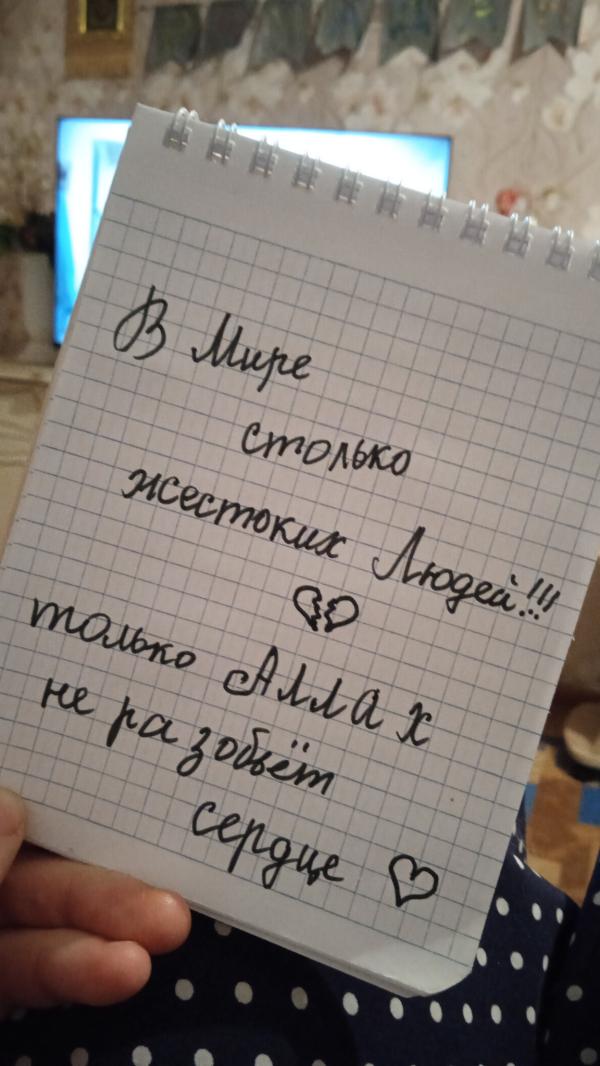 В Мире
столько
жестоких Людей!!!
только АЛЛАХ
не разобьёт
сердце